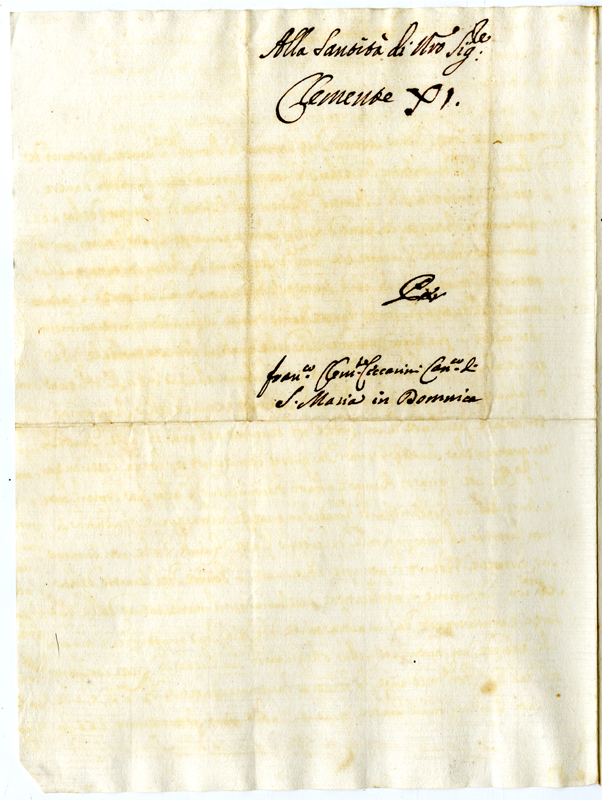 Alla Santità di Nro Sig.re
Clemente XI.
Per
Fran.co Clem.te Ceccarini Can.co di
S. Maria in Domnica